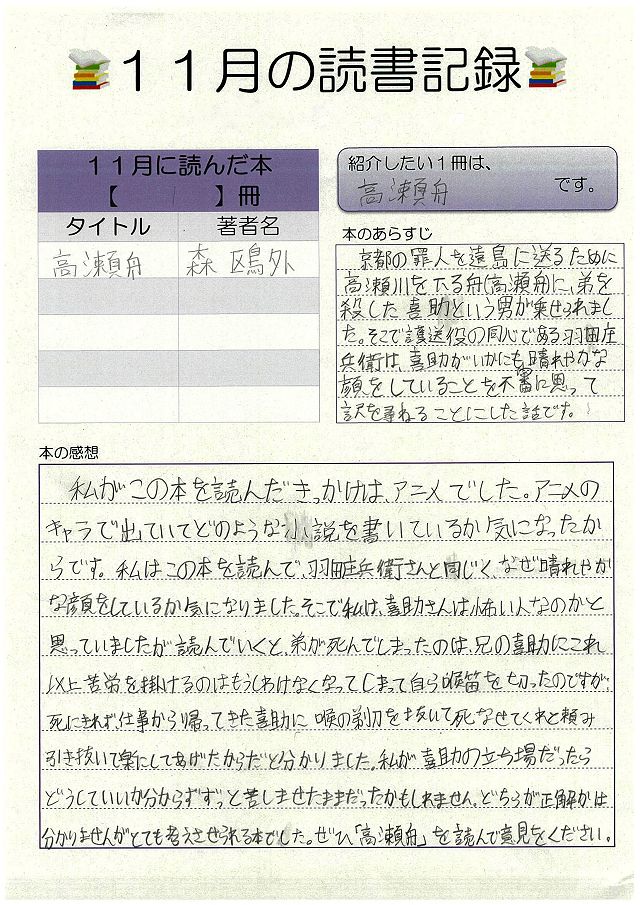 11月の読書記録
11月に読んだ本
【　　　】冊
タイトル　著者名
高瀬舟　森鴎外
紹介したい1冊は、
高瀬舟　です。
本のあらすじ
京都の罪人を遠島に送るために
高瀬川を下る舟(高瀬舟)に、弟を
殺した喜助という男が乗せられまし
た。そこで護送役の同心である羽田庄
兵衛は、喜助がいかにも晴れやかな
顔をしていることを不審に思って
訳を尋ねることにした話です。
本の感想
私がこの本を読んだきっかけは、アニメでした。アニメの
キャラで出ていてどのような小説を書いているか気になったか
らです。私はこの本を読んで、羽田庄兵衛さんと同じく、なぜ晴れやか
な顔をしているか気になりました。そこで私は、喜助さんは怖い人なのかと
思っていましたが読んでいくと、弟が死んでしまったのは、兄の喜助にこれ
以上苦労を掛けるのはもうしわけなくなってしまって自ら喉笛を切ったのですが、
死にきれず仕事から帰ってきた喜助に喉の剃刀を抜いて死なせてくれと頼み
引き抜いて楽にしてあげたからだと分かりました。私が喜助の立ち場だったら
どうしていいか分からずずっと苦しませたままだったかもしれません。どちらが正解かは
分かりませんがとても考えさせられる本でした。ぜひ「高瀬舟」を読んで意見をください。